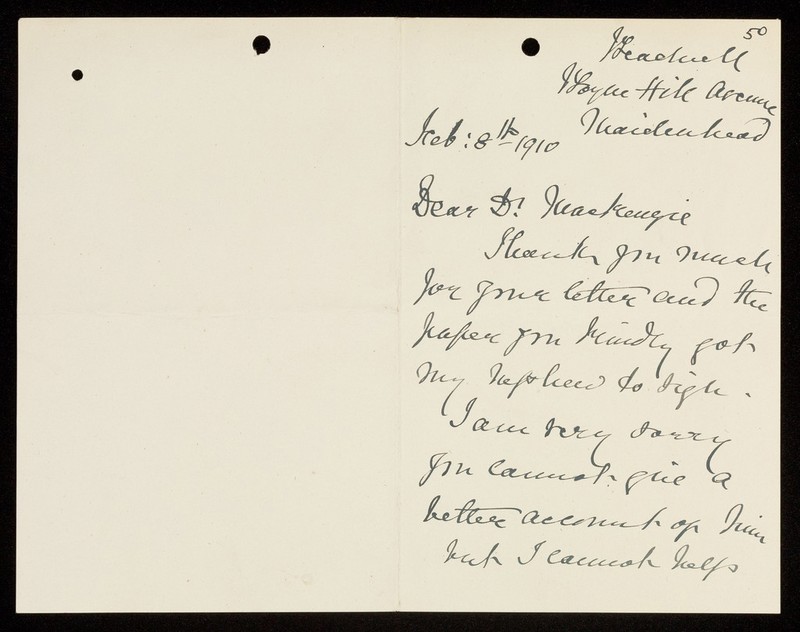 50
Headwell
Boyne Hill Avenue
Maidenhead
Feb: 8th 1910
Dear Dr Mackenzie
Thank you much
for your letter and the
paper you kindly got
my nephew to sign.
I am very sorry
you cannot give a
better account of him
but I cannot help